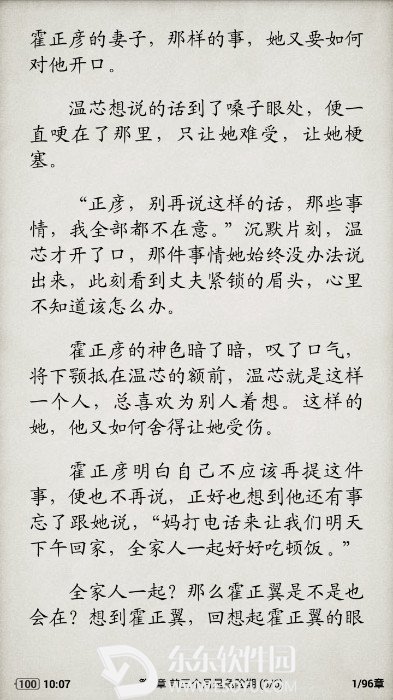 霍正彦的妻子，那样的事，她又要如何
对他开口。
温芯想说的话到了嗓子眼处，便一
直哽在了那里，只让她难受，让她梗
塞。
“正彦，别再说这样的话，那些事
情，我全部都不在意。”沉默片刻，温
芯才开了口，那件事情她始终没办法说
出来，此刻看到丈夫紧锁的眉头，心里
不知道该怎么办。
霍正彦的神色暗了暗，叹了口气，
将下颚抵在温芯的额前，温芯就是这样
一个人，总喜欢为别人着想。这样的
她，他又如何舍得让她受伤。
霍正彦明白自己不应该再提这件
事，便也不再说，正好也想到他还有事
忘了跟她说，“妈打电话来让我们明天
下午回家，全家人一起好好吃顿饭。”
全家人一起？那么霍正翼是不是也
会在？想到霍正翼，回想起霍正翼的眼
100 10:07 章 1/96章
东东软件园